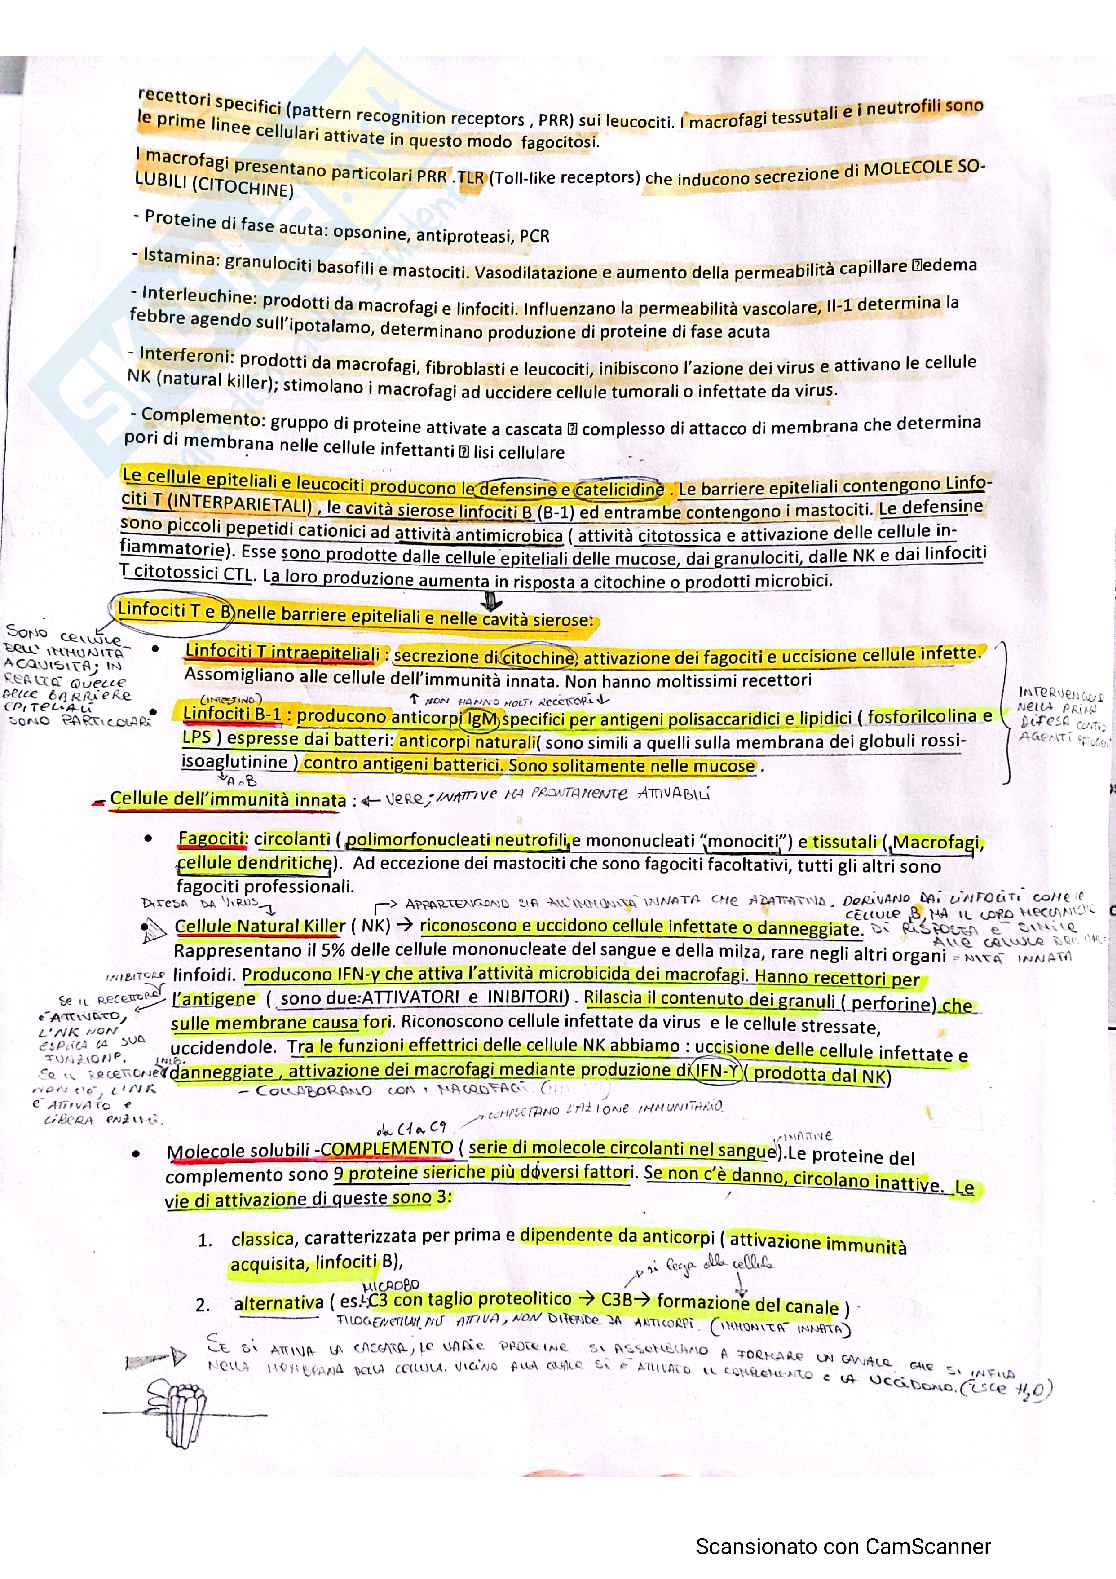 recettori specifici (pattern recognition receptors , PRR) sui leucociti. I macrofagi tessutali e i neutrofili sono
le prime linee cellulari attivate in questo modo  fagocitosi.
I macrofagi presentano particolari PRR .TLR (Toll-like receptors) che inducono secrezione di MOLECOLE SO-
LUBILI (CITOCHINE)
- Proteine di fase acuta: opsonine, antiproteasi, PCR
- Istamina: granulociti basofili e mastociti. Vasodilatazione e aumento della permeabilità capillare edema
- Interleuchine: prodotti da macrofagi e linfociti. Influenzano la permeabilità vascolare, Il-1 determina la
febbre agendo sull'ipotalamo, determinano produzione di proteine di fase acuta
- Interferoni: prodotti da macrofagi, fibroblasti e leucociti, inibiscono l'azione dei virus e attivano le cellule
NK (natural killer); stimolano i macrofagi ad uccidere cellule tumorali o infettate da virus.
- Complemento: gruppo di proteine attivate a cascata complesso di attacco di membrana che determina
pori di membrana nelle cellule infettanti lisi cellulare
Le cellule epiteliali e leucociti producono le defensine e catelicidine . Le barriere epiteliali contengono Linfo-
citi T (INTERPARIETALI) , le cavità sierose linfociti B (B-1) ed entrambe contengono i mastociti. Le defensine
sono piccoli pepetidi cationici ad attività antimicrobica ( attività citotossica e attivazione delle cellule in-
fiammatorie). Esse sono prodotte dalle cellule epiteliali delle mucose, dai granulociti, dalle NK e dai linfociti
T citotossici CTL. La loro produzione aumenta in risposta a citochine o prodotti microbici.
Linfociti T e B nelle barriere epiteliali e nelle cavità sierose:
SONO CELLULE
DELL'IMMUNITÀ
ACQUISITA, IN
REALTÀ QUELLE
DELLE BARRIERE
EPITELIALI
SONO PARTICOLARI
• Linfociti T intraepiteliali : secrezione di citochine, attivazione dei fagociti e uccisione cellule infette.
Assomigliano alle cellule dell'immunità innata. Non hanno moltissimi recettori
(INTESTINO) ↑ NON HANNO MOLTI RECETTORI ↓
• Linfociti B-1 : producono anticorpi IgM specifici per antigeni polisaccaridici e lipidici ( fosforilcolina e
LPS ) espresse dai batteri: anticorpi naturali( sono simili a quelli sulla membrana dei globuli rossi-
isoaglutinine ) contro antigeni batterici. Sono solitamente nelle mucose .
A o B
INTERVENGONO
NELLA PRIMA
DIFESA CONTRO
AGENTI
- Cellule dell'immunità innata : ← VERE; INATTIVE MA PRONTAMENTE ATTIVABILI
• Fagociti: circolanti ( polimorfonucleati neutrofili e mononucleati "monociti") e tissutali ( Macrofagi,
cellule dendritiche).  Ad eccezione dei mastociti che sono fagociti facoltativi, tutti gli altri sono
fagociti professionali.
DIFESA DA VIRUS
→ APPARTENGONO SIA ALL'IMMUNITÀ INNATA CHE ADATTATIVA. DERIVANO DAI LINFOCITI COME LE
CELLULE B, MA IL LORO MECCANISMO
DI RISPOSTA È SIMILE
ALLE CELLULE DELL'IMMU-
NITÀ INNATA
• Cellule Natural Killer ( NK) → riconoscono e uccidono cellule infettate o danneggiate.
Rappresentano il 5% delle cellule mononucleate del sangue e della milza, rare negli altri organi
linfoidi. Producono IFN-γ che attiva l'attività microbicida dei macrofagi. Hanno recettori per
l'antigene  ( sono due:ATTIVATORI e  INIBITORI) . Rilascia il contenuto dei granuli ( perforine) che
sulle membrane causa fori. Riconoscono cellule infettate da virus  e le cellule stressate,
uccidendole.  Tra le funzioni effettrici delle cellule NK abbiamo : uccisione delle cellule infettate e
danneggiate , attivazione dei macrofagi mediante produzione di IFN-Y ( prodotta dal NK)
INIBITORE
SE IL RECETTORE
È ATTIVATO,
L'NK NON
ESPLICA LA SUA
FUNZIONE.
INIB.
SE IL RECETTORE
NON C'È, L'NK
È ATTIVATO E
LIBERA ENZIMI.
- COLLABORANO CON I MACROFAGI
da C1 a C9
COMPLETANO L'AZIONE IMMUNITARIA.
INATTIVE
• Molecole solubili -COMPLEMENTO ( serie di molecole circolanti nel sangue).Le proteine del
complemento sono 9 proteine sieriche più diversi fattori. Se non c'è danno, circolano inattive.  Le
vie di attivazione di queste sono 3:
1. classica, caratterizzata per prima e dipendente da anticorpi ( attivazione immunità
acquisita, linfociti B),
MICROBO
si lega alla cellula
2. alternativa ( es: C3 con taglio proteolitico → C3B→ formazione del canale )
FILOGENETICAM. PIÙ ATTIVA, NON DIPENDE DA ANTICORPI. (IMMUNITÀ INNATA)
SE SI ATTIVA LA CASCATA, LE VARIE PROTEINE SI ASSEMBLANO A FORMARE UN CANALE CHE SI INFILA
NELLA MEMBRANA DELLA CELLULA VICINO ALLA QUALE SI È ATTIVATO IL COMPLEMENTO E LA UCCIDONO. (ESCE H₂O)
Scansionato con CamScanner